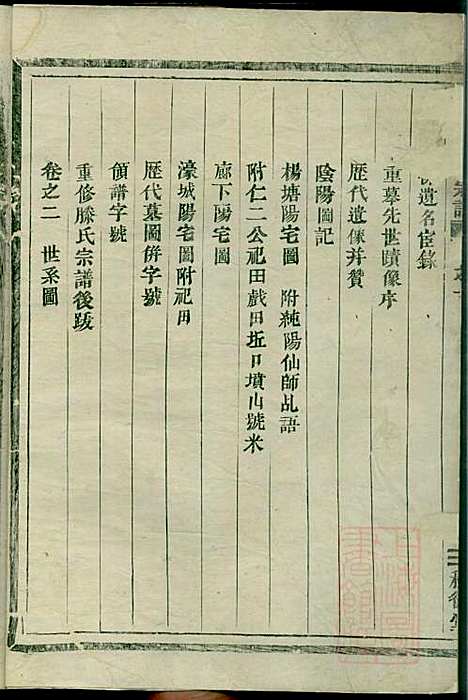 遺名宦錄
重摹先世蹟像序
歷代遺像并贊
陰陽圖記
楊塘陽宅圖 附純陽仙師乩語
附仁二公祀田戲田坵口墳山號米
廊下陽宅圖
濠城陽宅圖附祀田
歷代墓圖併字號
領譜字號
重修滕氏宗譜後跋
卷之二 世系圖